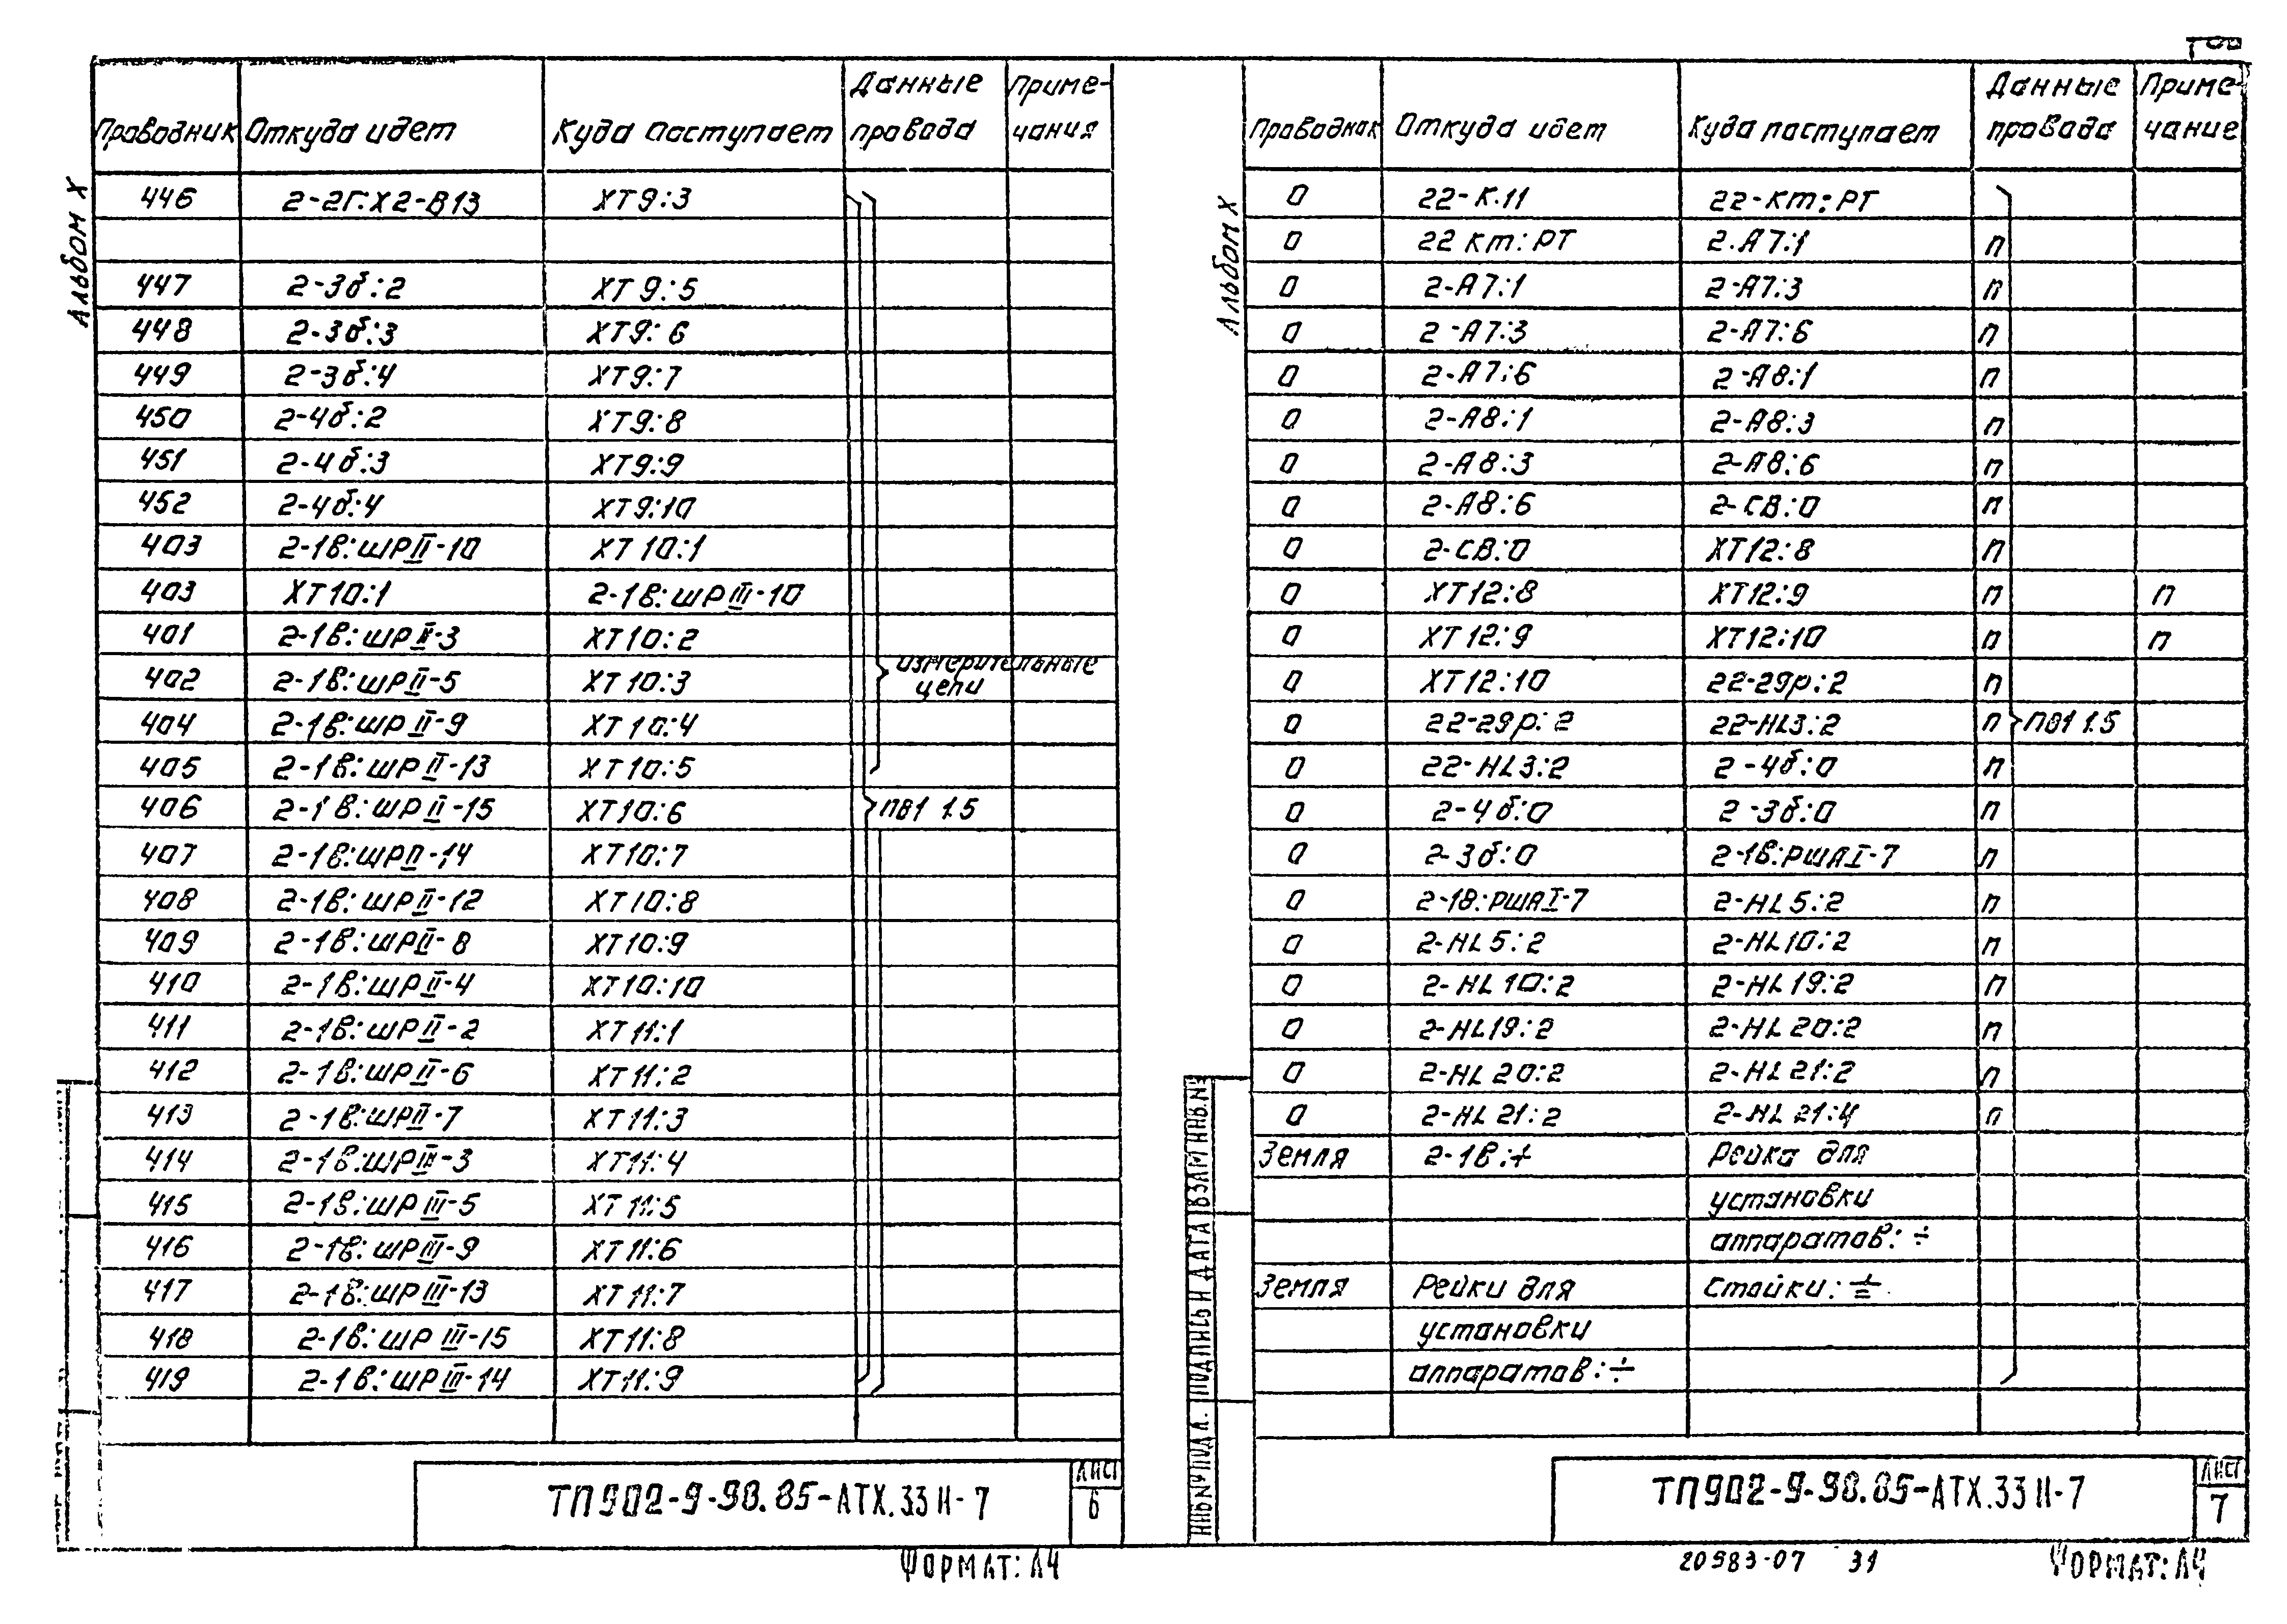 Альбом X
Проводник Откуда идет Куда поступает Данные провода Примечания
446 2-2Г:X2-В13 XT9:3
447 2-3б:2 XT9:5
448 2-3б:3 XT9:6
449 2-3б:4 XT9:7
450 2-4б:2 XT9:8
451 2-4б:3 XT9:9
452 2-4б:4 XT9:10
403 2-1в:ШРII-10 XT10:1
403 XT10:1 2-1в:ШРIII-10
401 2-1в:ШРII-3 XT10:2
402 2-1в:ШРII-5 XT10:3 измерительные цепи
404 2-1в:ШРII-9 XT10:4
405 2-1в:ШРII-13 XT10:5
406 2-1в:ШРII-15 XT10:6 ПВ1 1.5
407 2-1в:ШРII-14 XT10:7
408 2-1в:ШРII-12 XT10:8
409 2-1в:ШРII-8 XT10:9
410 2-1в:ШРII-4 XT10:10
411 2-1в:ШРII-2 XT11:1
412 2-1в:ШРII-6 XT11:2
413 2-1в:ШРII-7 XT11:3
414 2-1в:ШРIII-3 XT11:4
415 2-1в:ШРIII-5 XT11:5
416 2-1в:ШРIII-9 XT11:6
417 2-1в:ШРIII-13 XT11:7
418 2-1в:ШРIII-15 XT11:8
419 2-1в:ШРIII-14 XT11:9
ТП902-9-98.85-АТХ.33И-7
Лист
6
Формат: А4
Альбом X
Проводник Откуда идет Куда поступает Данные провода Примечание
0 22-К.11 22-КТ:РТ
0 22 КТ:РТ 2.А7:1 п
0 2-А7:1 2-А7:3 п
0 2-А7:3 2-А7:6 п
0 2-А7:6 2-А8:1 п
0 2-А8:1 2-А8:3 п
0 2-А8:3 2-А8:6 п
0 2-А8:6 2-СВ:0 п
0 2-СВ:0 XT12:8 п
0 XT12:8 XT12:9 п п
0 XT12:9 XT12:10 п п
0 XT12:10 22-29р:2 п
0 22-29р:2 22-HL3:2 п ПВ1 1.5
0 22-HL3:2 2-4б:0 п
0 2-4б:0 2-3б:0 п
0 2-3б:0 2-1в:РШАI-7 п
0 2-1в:РШАI-7 2-HL5:2 п
0 2-HL5:2 2-HL10:2 п
0 2-HL10:2 2-HL19:2 п
0 2-HL19:2 2-HL20:2 п
0 2-HL20:2 2-HL21:2 п
0 2-HL21:2 2-HL21:4 п
Земля 2-1в:⏚ Рейка для
установки
аппаратов:⏚
Земля Рейки для Стойки:⏚
установки
аппаратов:⏚
ИНВ № ПОДЛ. ПОДПИСЬ И ДАТА ВЗАМ ИНВ.№
ТП902-9-98.85-АТХ.33И-7
Лист
7
20983-07 31
Формат: А4